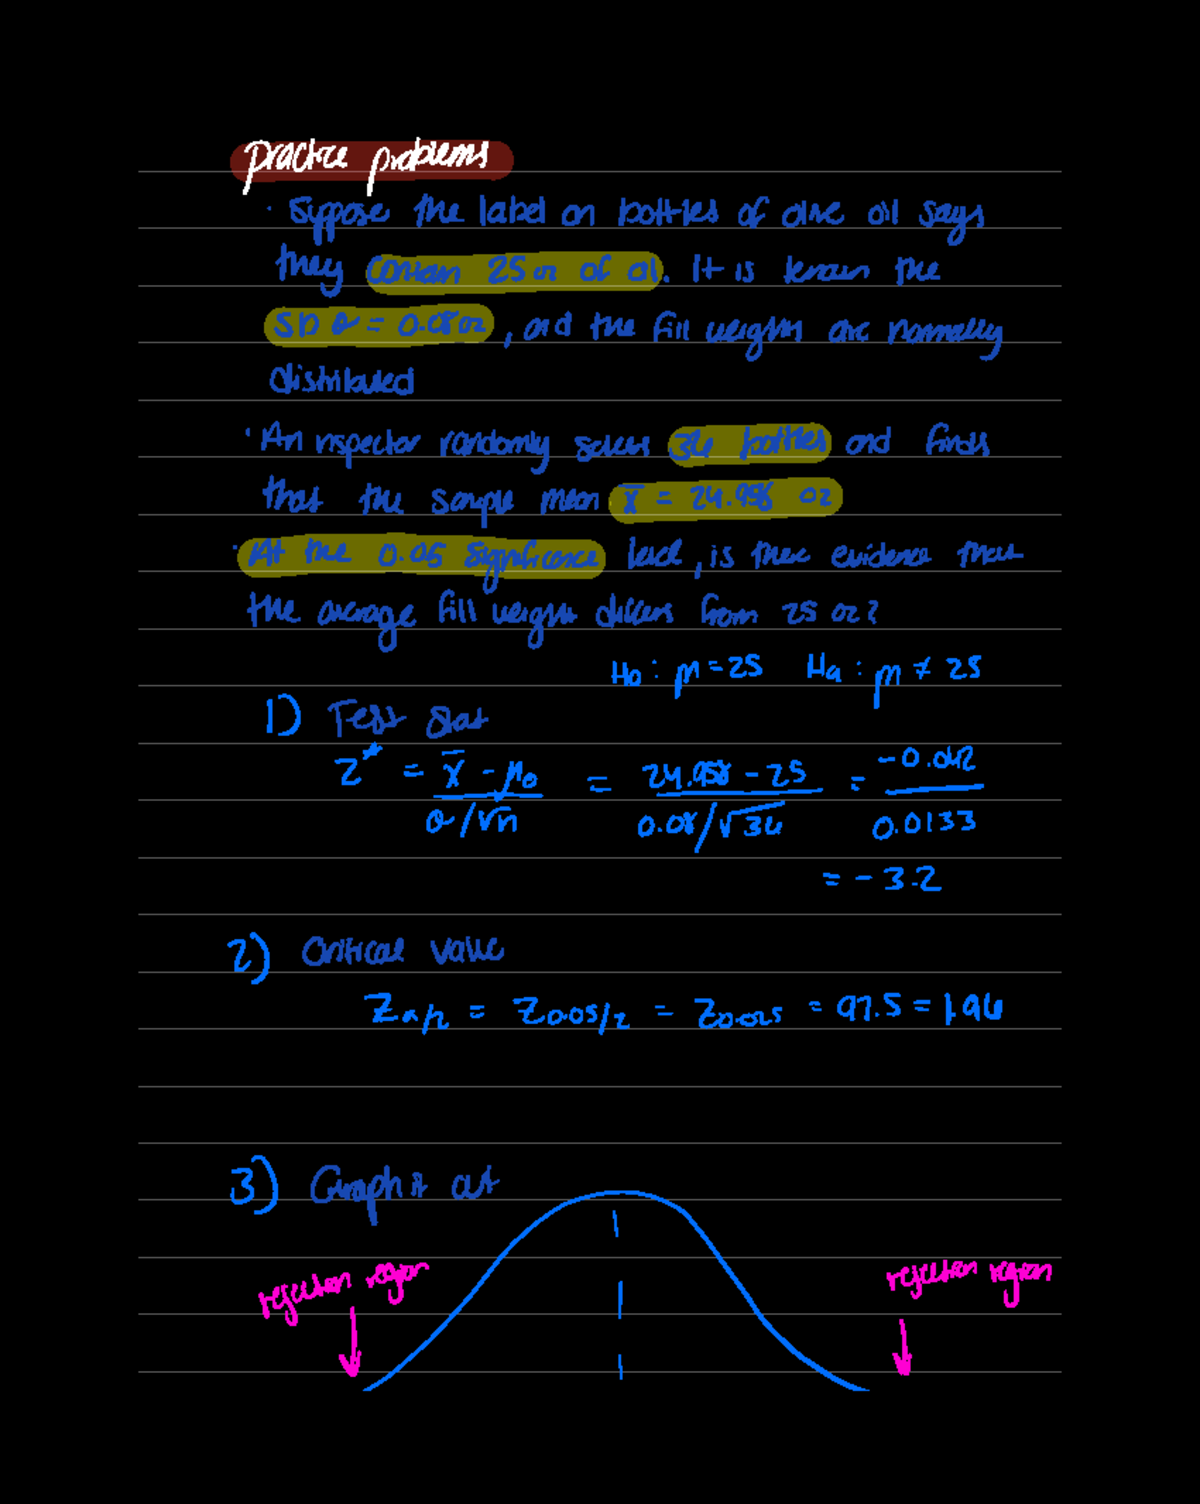 practice problems
· Suppose the label on bottles of olive oil says
they contain 25 oz of oil. It is known the
SD σ = 0.08 oz, and the fill weights are normally
distributed
· An inspector randomly selects 36 bottles and finds
that the sample mean x̄ = 24.958 oz
· At the 0.05 significance level, is there evidence that
the average fill weight differs from 25 oz?
H₀ : μ = 25 Hₐ : μ ≠ 25
1) Test Stat
z* = x̄ - μ₀ / σ/√n = 24.958 - 25 / 0.08/√36 = -0.042 / 0.0133
= - 3.2
2) Critical value
Zα/2 = Z0.05/2 = Z0.025 = 97.5 = 1.96
3) Graph it out
rejection region rejection region